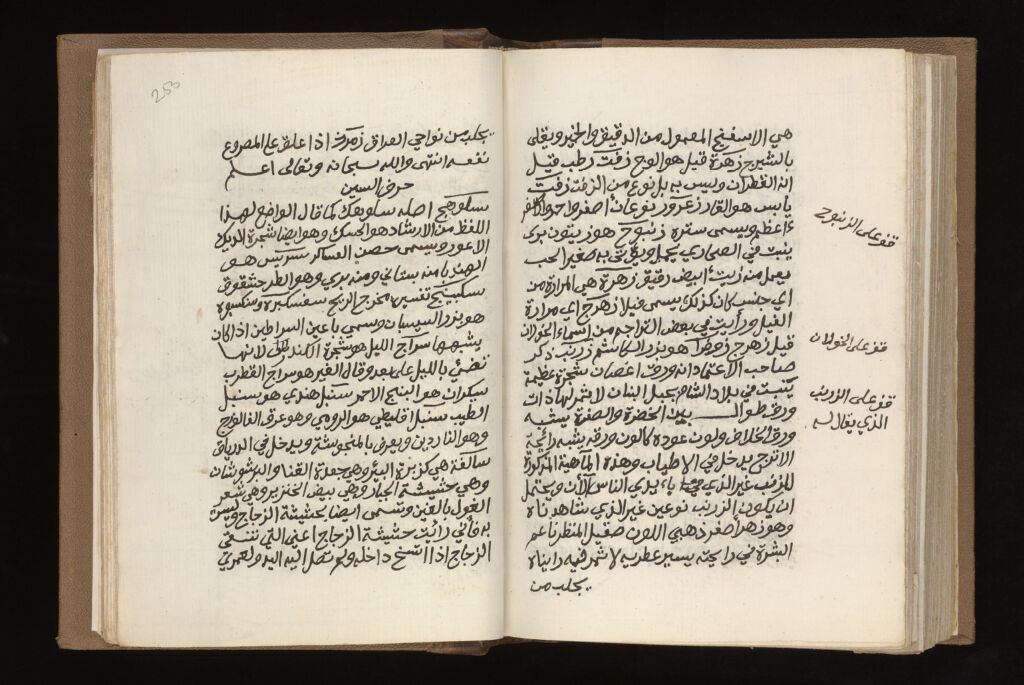 هي الاسفنج المعمول من الدقيق والخمير ويقلى
بالشيرج زهرة قيل هو الوج زفت رطب قيل
انه القطران وليس به بل نوع من الزفت زفت
يابس هو القار زعرور نوعان اصفر واحمر
اعظم ويسمى ستره زنبوج هو زيتون بري
ينبت في الصحاري يحمل ويؤتى به صغير الحب
يعمل منه زيت ابيض رقيق زهرة هي المرارة من
اي جنس كان كذلك يسمى فيلا زهرج اي مرارة
الفيل ورأيت في بعض التراجم من اسماء الخولان
قيل زهرج هو بزر الكاشم زرنب ذكر
صاحب الاعتماد انه ورق اغصان شجرة عظيمة
ينبت في بلاد الشام بجبل لبنان لا ثمر لها ذات
ورق طوال بين الخضرة والصفرة يشبه
ورق الخلاف ولون عوده كالون ورقه يشبه رائحة
الاترج يدخل في الاطياب وهذه الماهية المذكورة
للزرنب غير الذي بايدي الناس الان ويحتمل
ان يكون الزرنب نوعين غير الذي شاهدناه
وهو زهر اصفر ذهبي اللون صقيل المنظر ناعم
البشرة في رايحته يسير عطرية لا ثمر فيه رايناه
يجلب من
قف على الزنبوج
قف على الخولان
قف على الزرنب
الذي يقال له
253
يجلب من نواحي العراق زمرد اذا علق على المصروع
نفعه انتهى والله سبحانه وتعالى اعلم
حرف السين
سكوهج اصله سكوهك كما قال الواضع لهذا
اللفظ من الارشاد هو الحسك وهو ايضا شجرة الديك
الاعور ويسمى حمص العساكر سريس هو
الهندبا منه بستاني ومنه بري وهو الطرحشقوق
سكبينج تفسيره مخرج الريح
هو بزر السيسبان وسمي باعين السراطين اذا كان
يشبهها سراج الليل هو شجرة لانها
تضئي بالليل على بعد وقال الغير هو سراج القطرب
سكران هو البنج الاحمر سنبل هندي هو سنبل
الطيب سنبل اقليطي هو الرومي وهو عرق
وهو الناردين ويعرف بالمنجوشة ويدخل في الدرياق
هي كزبرة البير وهي جعدة القنا والبرشوشان
وهي حشيشة وهي بيض الخنزير وهي شعر
الغول بالغين وتسمى ايضا بحشيشة الزجاج وليس
به فاني رائت حشيشة الزجاج اعني التي تنقي
الزجاج اذا اتسخ داخله ولم تصل اليه اليد ولعمري